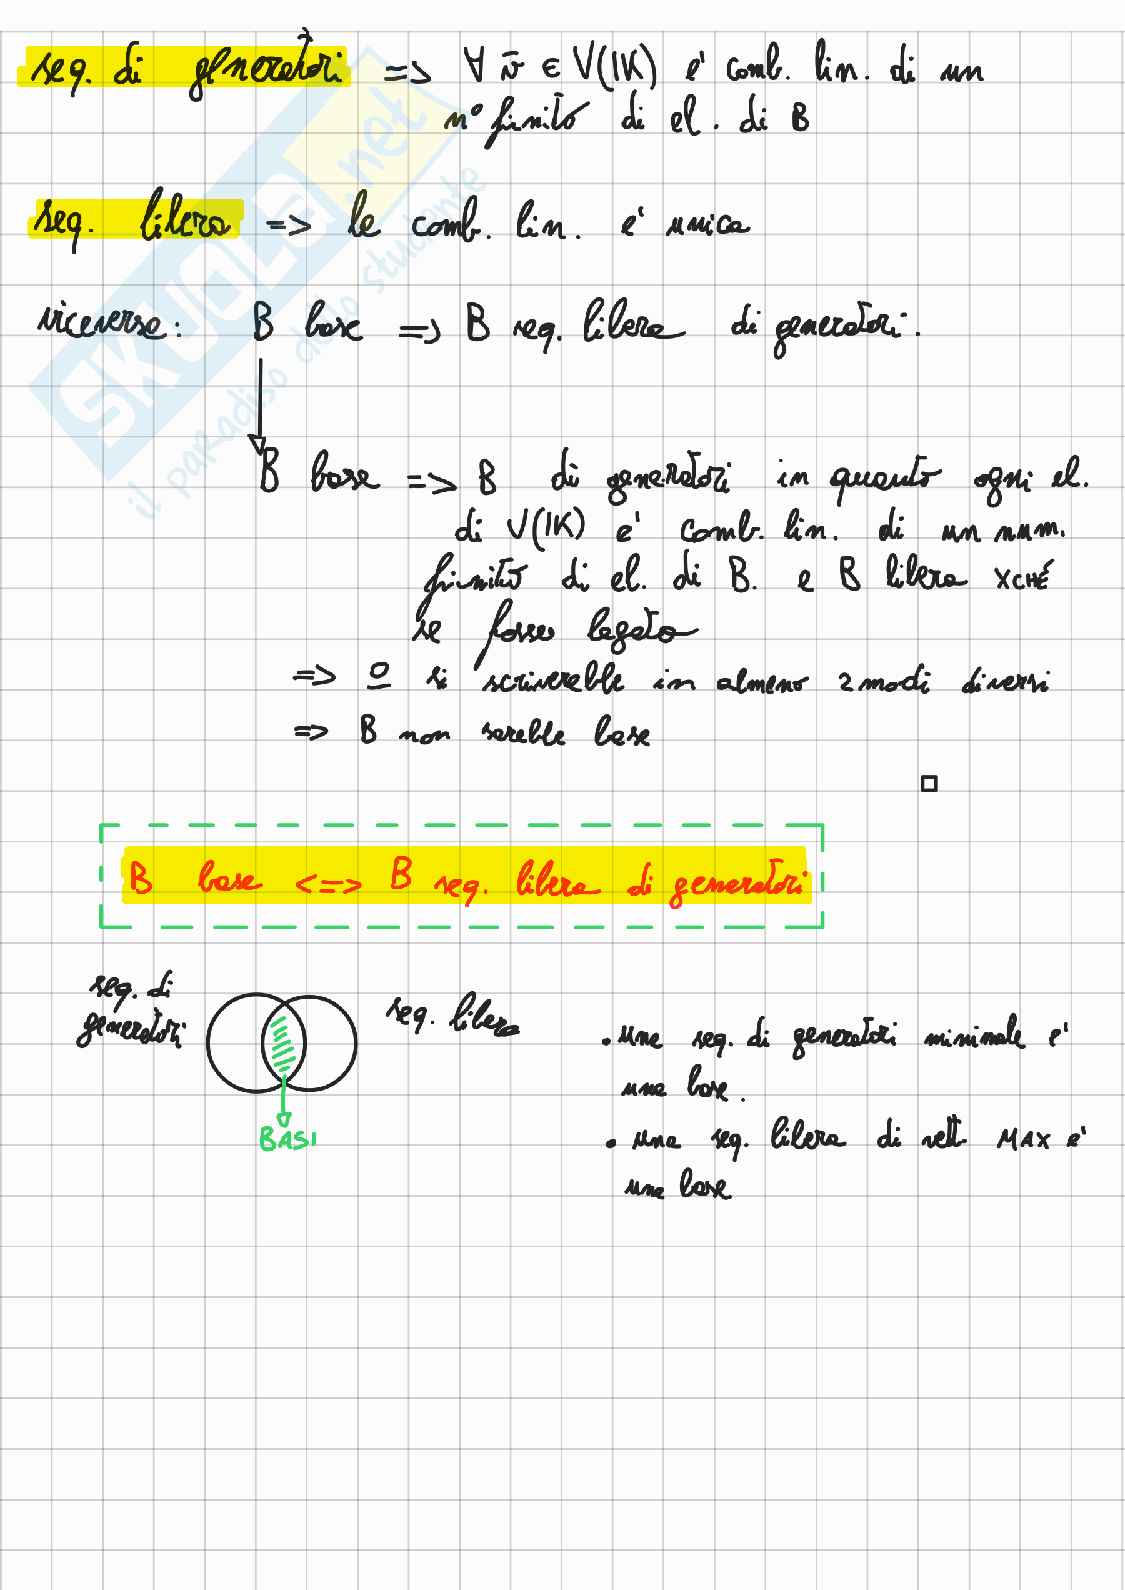 seq. di generatori => ∀ v̄ ∈ V(IK) e' comb. lin. di un
n° finito di el. di B
seq. libera => la comb. lin. e' unica
viceversa: B base => B seq. libera di generatori.
B base => B di generatori in quanto ogni el.
di V(IK) e' comb. lin. di un num.
finito di el. di B. e B libera XCHÉ
se fosse legata
=> 0 si scriverebbe in almeno 2 modi diversi
=> B non sarebbe base
B base <=> B seq. libera di generatori
seq. di
generatori
seq. libera
BASI
• una seq. di generatori minimale e'
una base.
• una seq. libera di vett. MAX e'
una base
SKUOLA.net
il paradiso dello studente